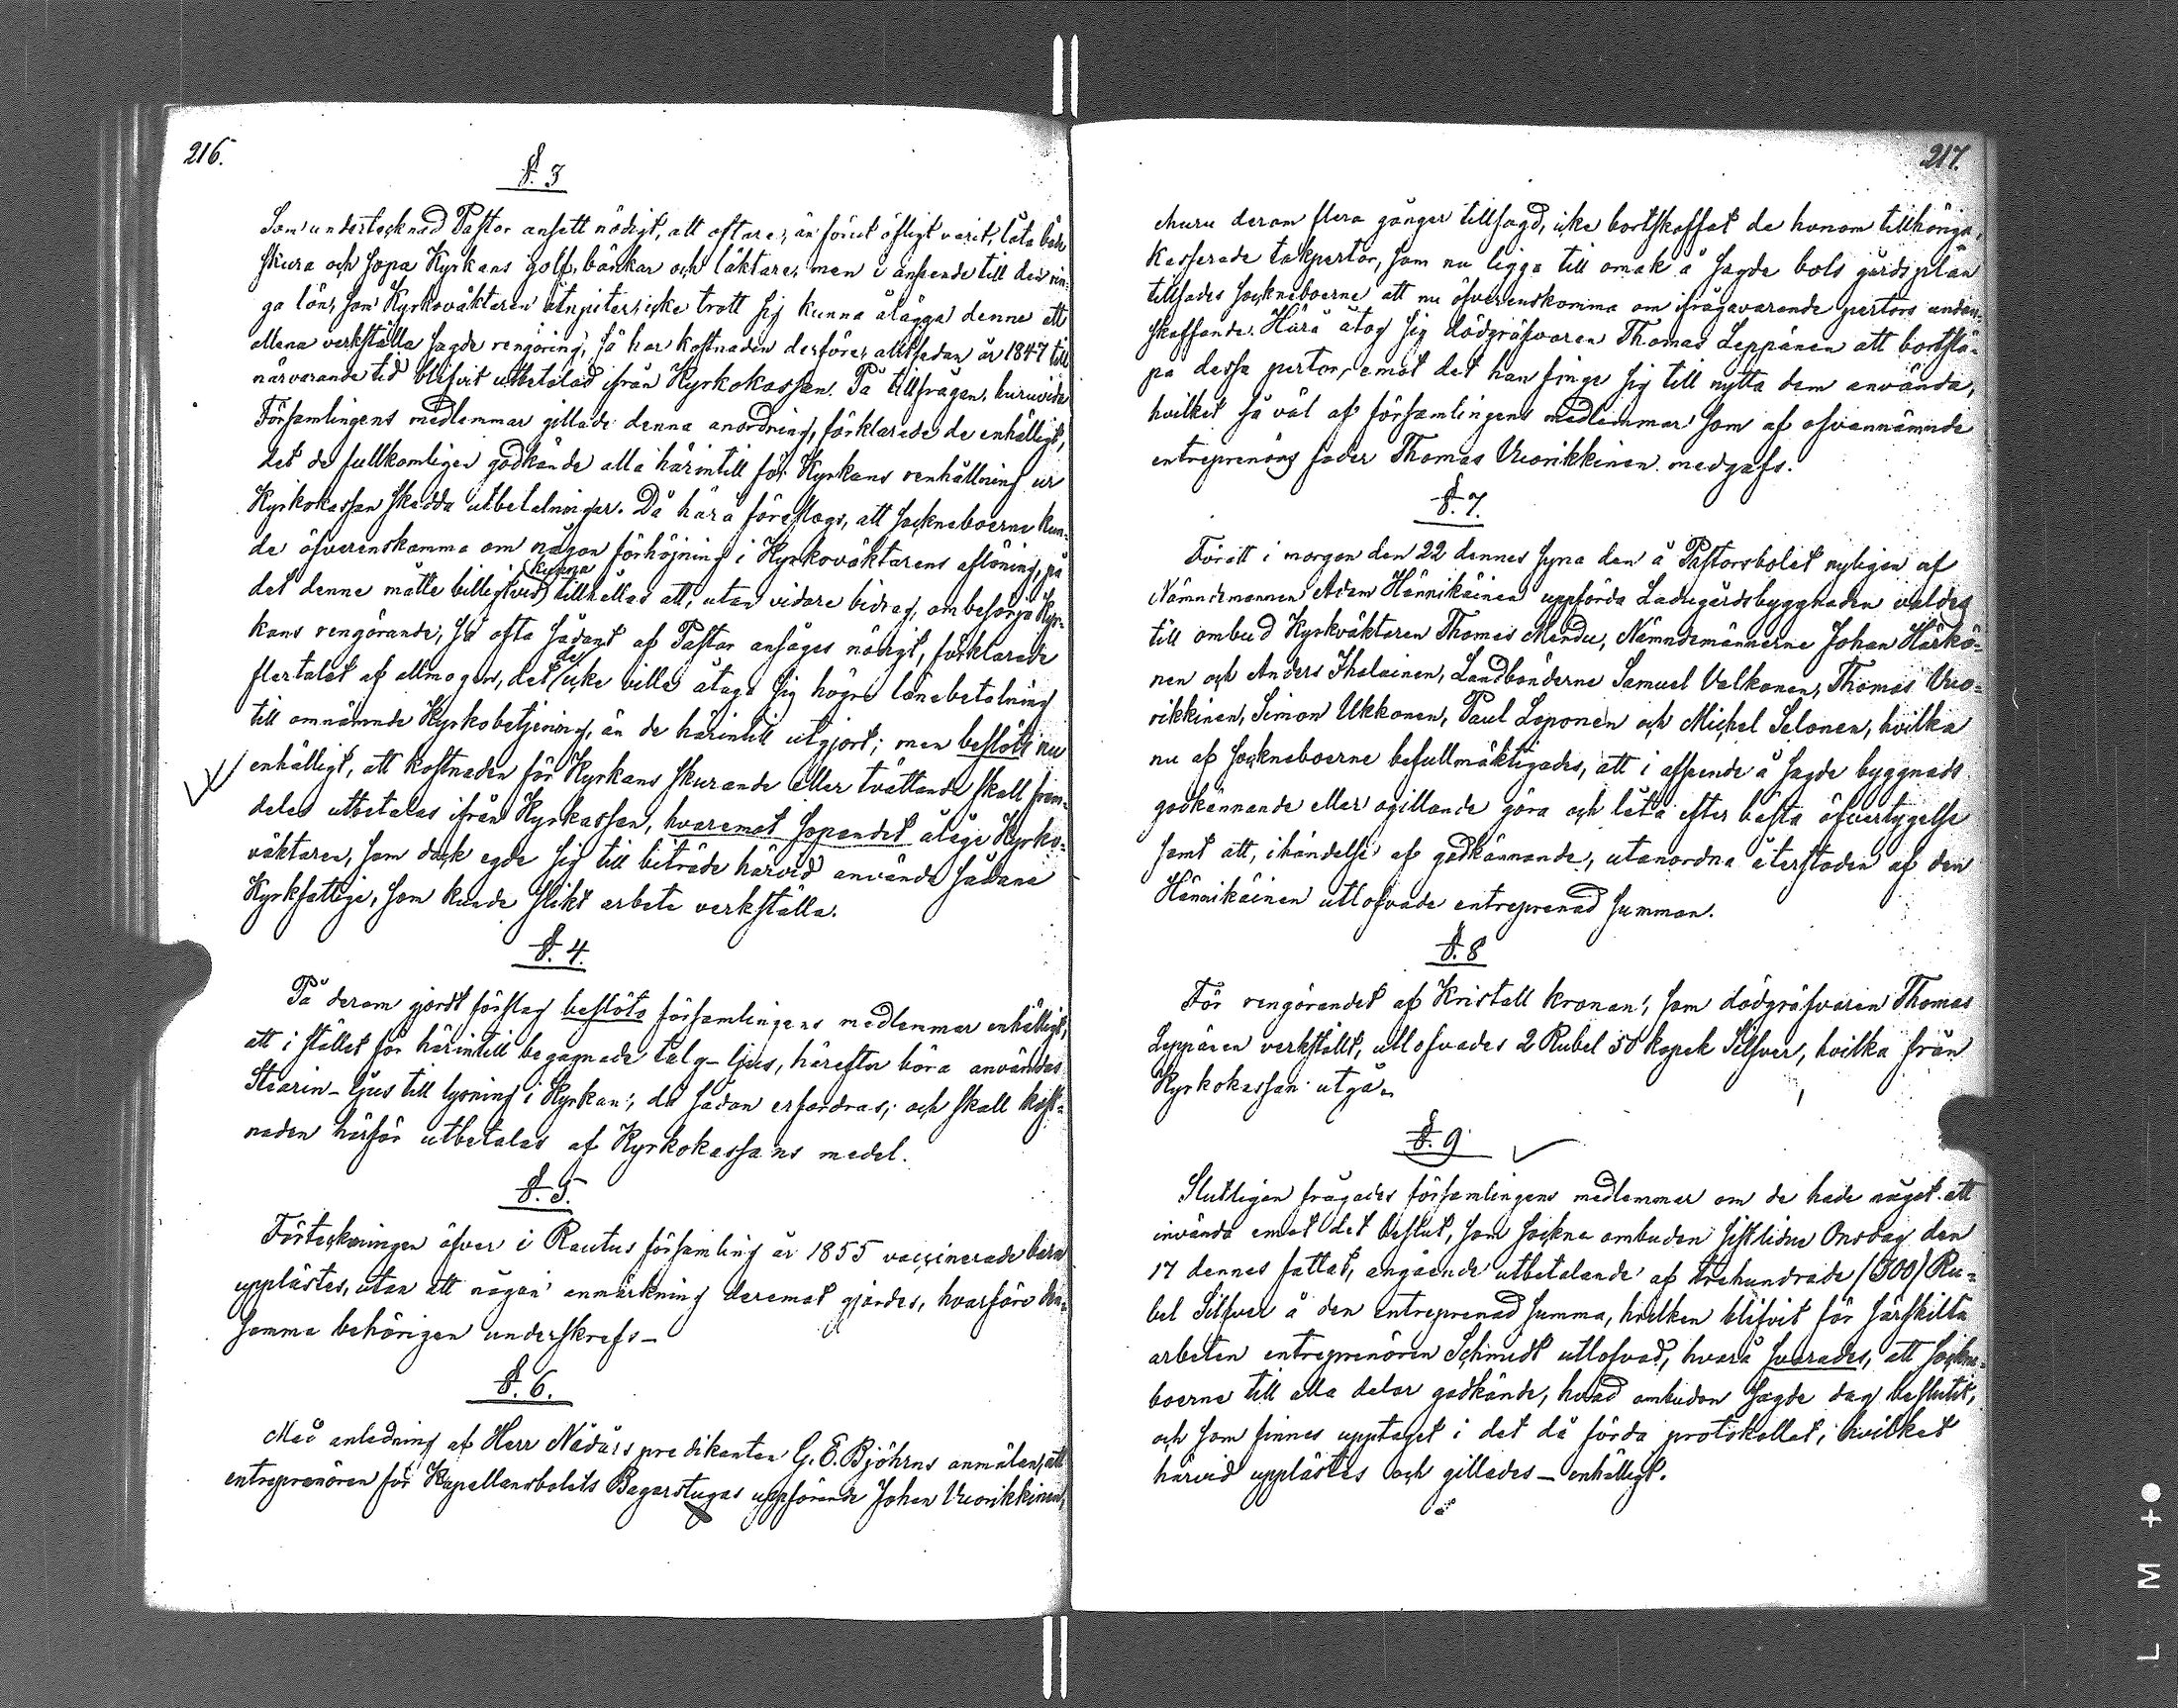 216.
§. 3
Som undertecknad Pastor ansett nödigt, att oftare, än förut öfligt varit, låta både
skura och sopa Kyrkans golf, bänkar och läktare, men i anseende till den rin-
ga lön, som Kyrkoväktaren åtnjuter, icke trott sig kunna ålägga denne att
allena verkställa sagde rengöring, så har kostnaden derföre, alltsedan år 1847 till
närvarande tid blifvit utbetalad ifrån Kyrkokassan. På tillfrågan, huruvida
Församlingens medlemmar gillade denna anordning, förklarade de enhälligt,
det de fullkomligen godkände alla härintill för Kyrkans renhållning ur
Kyrkokassan skedda utbetalningar. Då härå föreslogs, att sockneboerne kun-
de öfverenskomma om någon förhöjning i Kyrkoväktarens aflöning, på
det denne måtte billigtvis kunna tillhållas att, utan vidare bidrag, ombesörja Kyr-
kans rengörande, så ofta sådant af Pastor ansåges nödigt, förklarade
flertalet af allmogen, det de icke ville åtaga sig högre lönebetalning
till omnämnde Kyrkobetjening, än de härintill utgjort; men beslöts nu
enhälligt, att kostnaden för Kyrkans skurande eller tvättande skall fram-
deles utbetalas ifrån Kyrkassan, hvaremot sopandet ålåge Kyrko-
väktaren, som dock egde sig till biträde härvid använda sådana
Kyrkfattige, som kunde slikt arbete verkställa.
§. 4.
På derom gjordt förslag beslöts församlingens medlemmar enhälligt,
att i stället för härintill begagnade talg-ljus, härefter böra användas
Stearin-ljus till lysning i Kyrkan, då sådan erfordras; och skall kost-
naden härför utbetalas af Kyrkokassans medel.
§. 5.
Förteckningen öfver i Rautus församling år 1855 vaccinerade barn
upplästes, utan att någon anmärkning deremot gjordes, hvarföre den-
samma behörigen underskrefs_
§. 6.
Med anledning af Herr Nådårs predikanten G. E. Björns anmälan, att
entreprenören för Kapellansbolets Bagarstugas uppförande Johan Vuorikkinen,
217.
ehuru derom flera gånger tillsagd, icke bortskaffat de honom tillhöriga,
Kasserade takpertor, som nu ligga till omak å sagde bols gårdsplan
tillsades sockneboerne att nu öfverenskomma om ifrågavarande pertors undan-
skaffande. Härå åtog sig dödgräfvaren Thomas Leppänen att bortslä-
pa dessa pertor, emot det han finge sig till nytta dem använda,
hvilket så väl af församlingens medlemmar som af ofvannämnde
entreprenörs fader Thomas Vuorikkinen medgafs.
§. 7.
För att i morgon den 22 dennes syna den å Pastorsbolet nyligen af
Nämndemannen Adam Hännikäinen uppförda Ladugårdsbyggnaden valdes
till ombud Kyrkväktaren Thomas Mandu, Nämndemännerne Johan Härkö-
nen och Anders Ihalainen, Landbönderne Samuel Valkonen, Thomas Vuo-
rikkinen, Simon Ukkonen, Paul Loponen och Michel Selonen, hvilka
nu af sockneboerne befullmäktigades, att i afseende å sagde byggnads
godkännande eller ogillande göra och låta efter bästa öfvertygelse
samt att, i händelse af godkännande, utanordna återstoden af den
Hännikäinen utlofvade entreprenad summan.
§. 8
För rengörandet af Kristall kronan, som dödgräfvaren Thomas
Leppänen verkställt, utlofvades 2 Rubel 50 kopek Silfver, hvilka från
Kyrkokassan utgå.
§. 9
Slutligen frågades församlingens medlemmar om de hade något att
invända emot det beslut, som sockne ombuden sistlidne Onsdag den
17 dennes fattat, angående utbetalande af trehundrade (300) Ru-
bel Silfver å den entreprenad summa, hvilken blifvit för särskilta
arbeten entreprenören Schmidt utlofvad, hvarå svarades, att sockne-
boerne till alla delar godkände, hvad ombuden sagde dag beslutit,
och som finnes upptaget i det då förda protokollet, hvilket
härvid upplästes och gillades _ enhälligt.
L M +